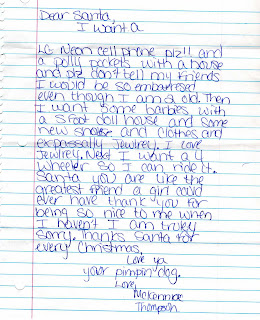 Dear Santa,
I want a
LG Neon cell phone plz!! and
a polly pockets with a house
and plz don't tell my friends
I would be so embarresed
even though I am 9. old. Then
I want some barbies with
a 5 foot doll house and some
new shoes and clothes and
expassally Jewlrey. I love
Jewlrey. Next I want a 4
wheeler so I can ride it.
Santa you are like the
greatest friend a girl could
ever have thank you for
being so nice to me when
I haven't I am truley
sorry. Thanks Santa for
every Christmas.
Love ya
your pimpin dog.
Love,
Mckennae
Thompson